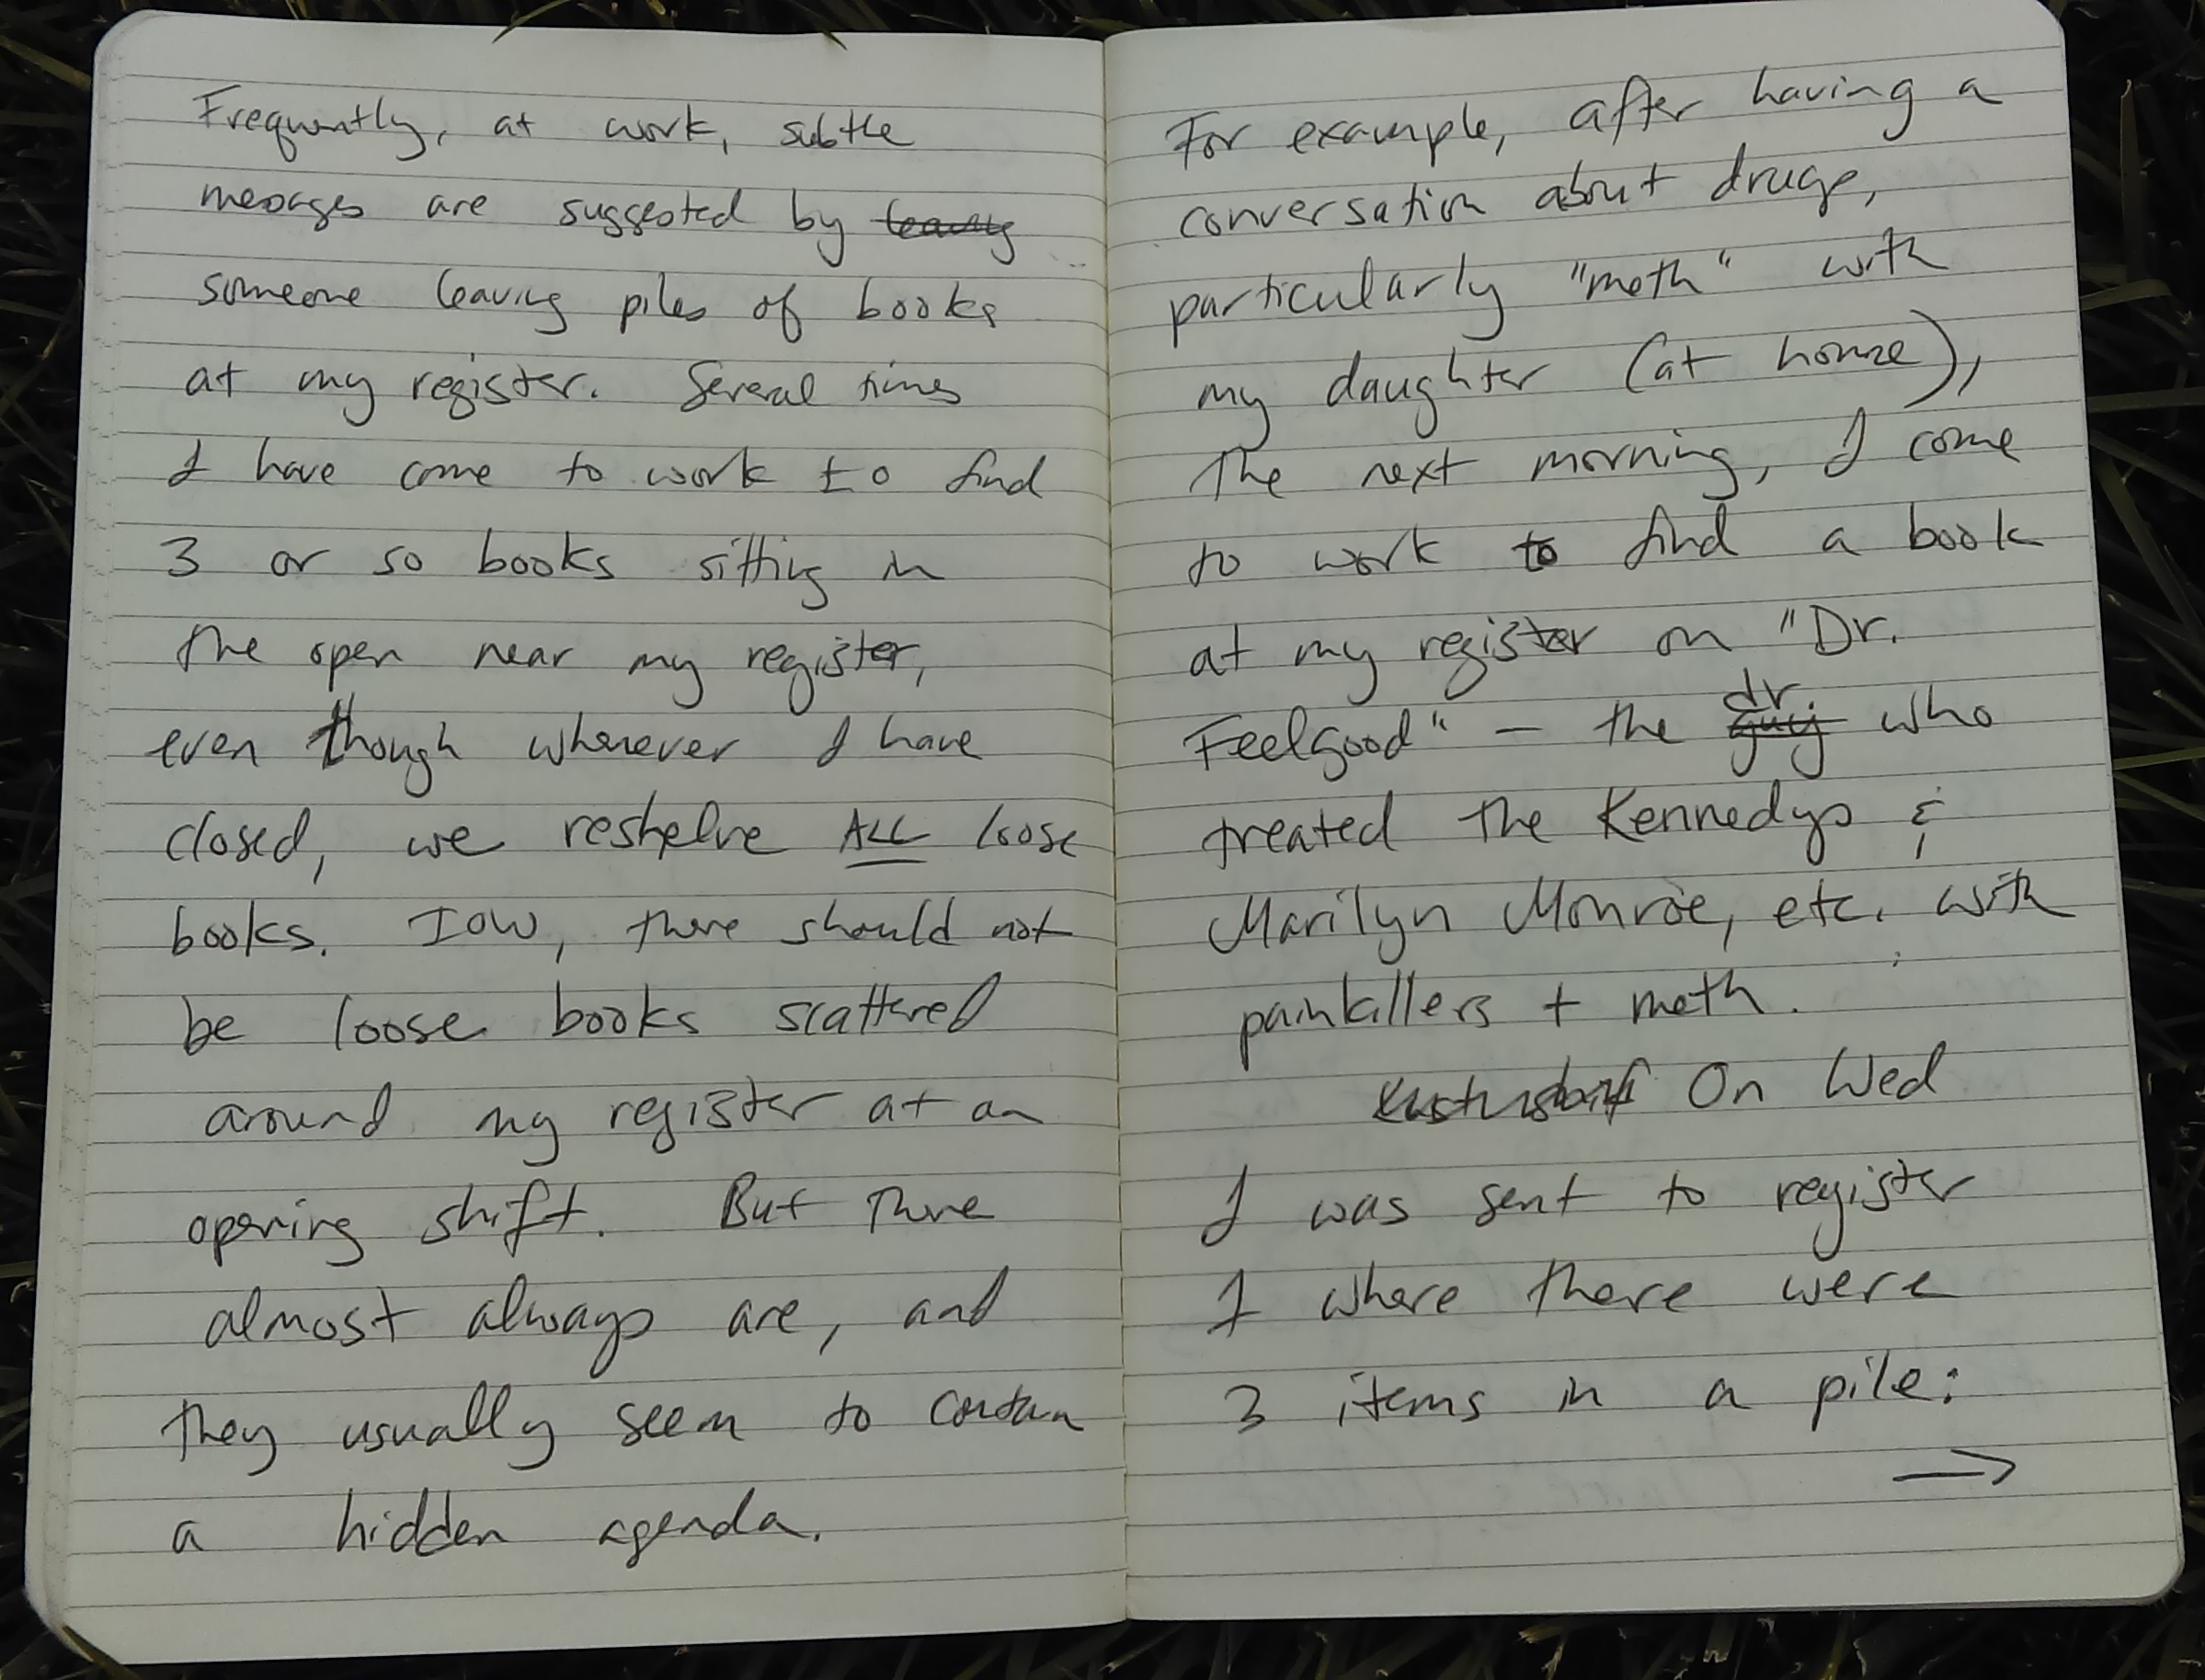 Frequently, at work, subtle
messages are suggested by leaving
someone leaving piles of books
at my register. Several times
I have come to work to find
3 or so books sitting in
the open near my register,
even though whenever I have
closed, we reshelve ALL loose
books. IOW, there should not
be loose books scattered
around my register at an
opening shift. But there
almost always are, and
they usually seem to contain
a hidden agenda.
For example, after having a
conversation about drugs,
particularly "meth" with
my daughter (at home),
the next morning, I come
to work to find a book
at my register on "Dr.
dr.
Feelgood" – the guy who
treated the Kennedys &
Marilyn Monroe, etc. with
painkillers + meth.
On Wed
I was sent to register
1 where there were
3 items in a pile:
→